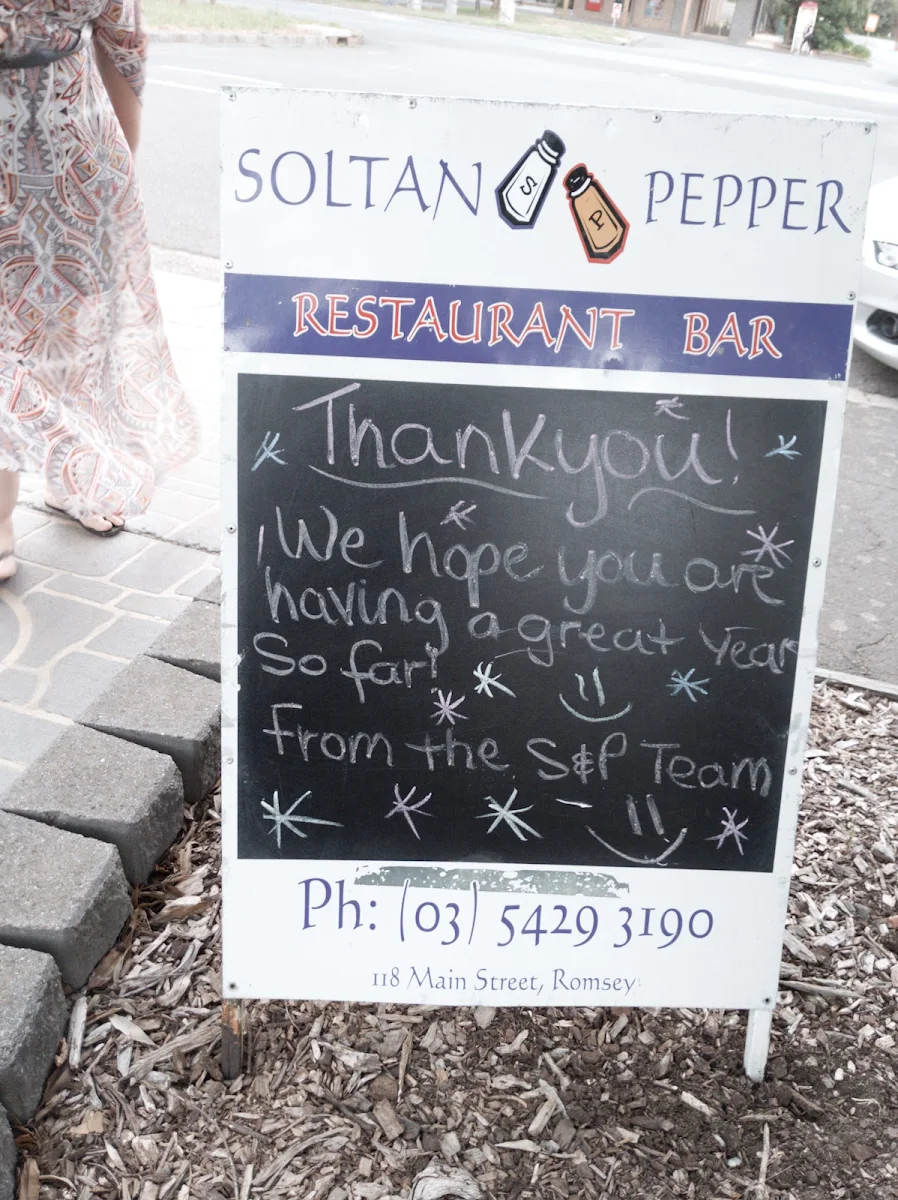 SOLTAN S P PEPPER
RESTAURANT BAR
Thankyou!
We hope you are
having a great Year
So far!
From the S&P Team
Ph: (03) 5429 3190
118 Main Street, Romsey